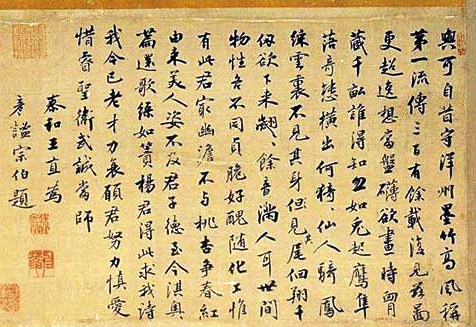 與可自昔守洋州墨竹高風稱
第一流傳三百有餘載復見茲圖
更超逸想當盤礴欲畫時胷
藏千畝誰得知忽如兔起鷹隼
落奇態橫出何猗〻仙人騎鳳
綵雲裏不見其身但見其尾回翔千
仞欲下來翽〻餘音滿人耳世間
物性各不同員脆好醜隨化工惟
有此君冣幽澹不与桃杏爭春紅
由来美人姿不及君子德至今淇奧
篇還歌綠如簀楊君得此求我詩
我今已老才力衰願君努力慎愛
惜睿聖衛武誠當師
泰和王直為
彥謐宗伯題